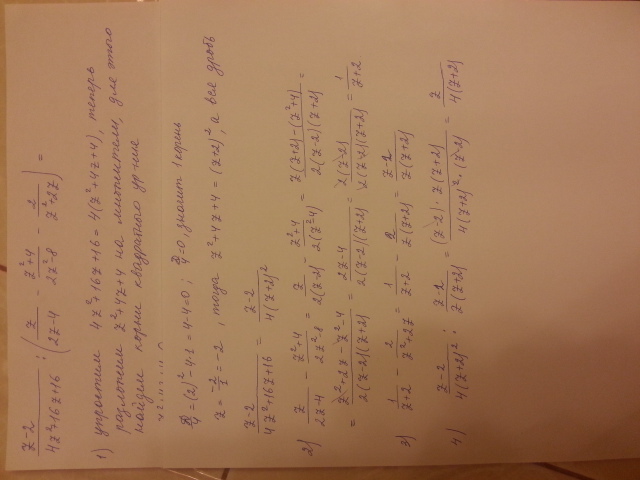 z-2 / 4z²+16z+16 : ( z / 2z-4 - z²+4 / 2z²-8 - 2 / z²+2z ) =
1) упростим 4z²+16z+16=4(z²+4z+4), теперь
разложим z²+4z+4 на множители, для этого
найдем корни квадратного ур-ние
D/4=(2)²-4·1=4-4=0; D/4=0, значит 1 корень
z=-2/1=-2, тогда z²+4z+4=(z+2)², а вся дробь
z-2 / 4z²+16z+16 = z-2 / 4(z+2)²
2) z / 2z-4 - z²+4 / 2z²-8 = z / 2(z-2) - z²+4 / 2(z²-4) = z(z+2)-(z²+4) / 2(z-2)(z+2) =
= z²+2z-z²-4 / 2(z-2)(z+2) = 2z-4 / 2(z-2)(z+2) = 2(z-2) / 2(z-2)(z+2) = 1 / z+2
3) 1 / z+2 - 2 / z²+2z = 1 / z+2 - 2 / z(z+2) = z-2 / z(z+2)
4) z-2 / 4(z+2)² : z-2 / z(z+2) = (z-2)·z(z+2) / 4(z+2)²·(z-2) = z / 4(z+2)